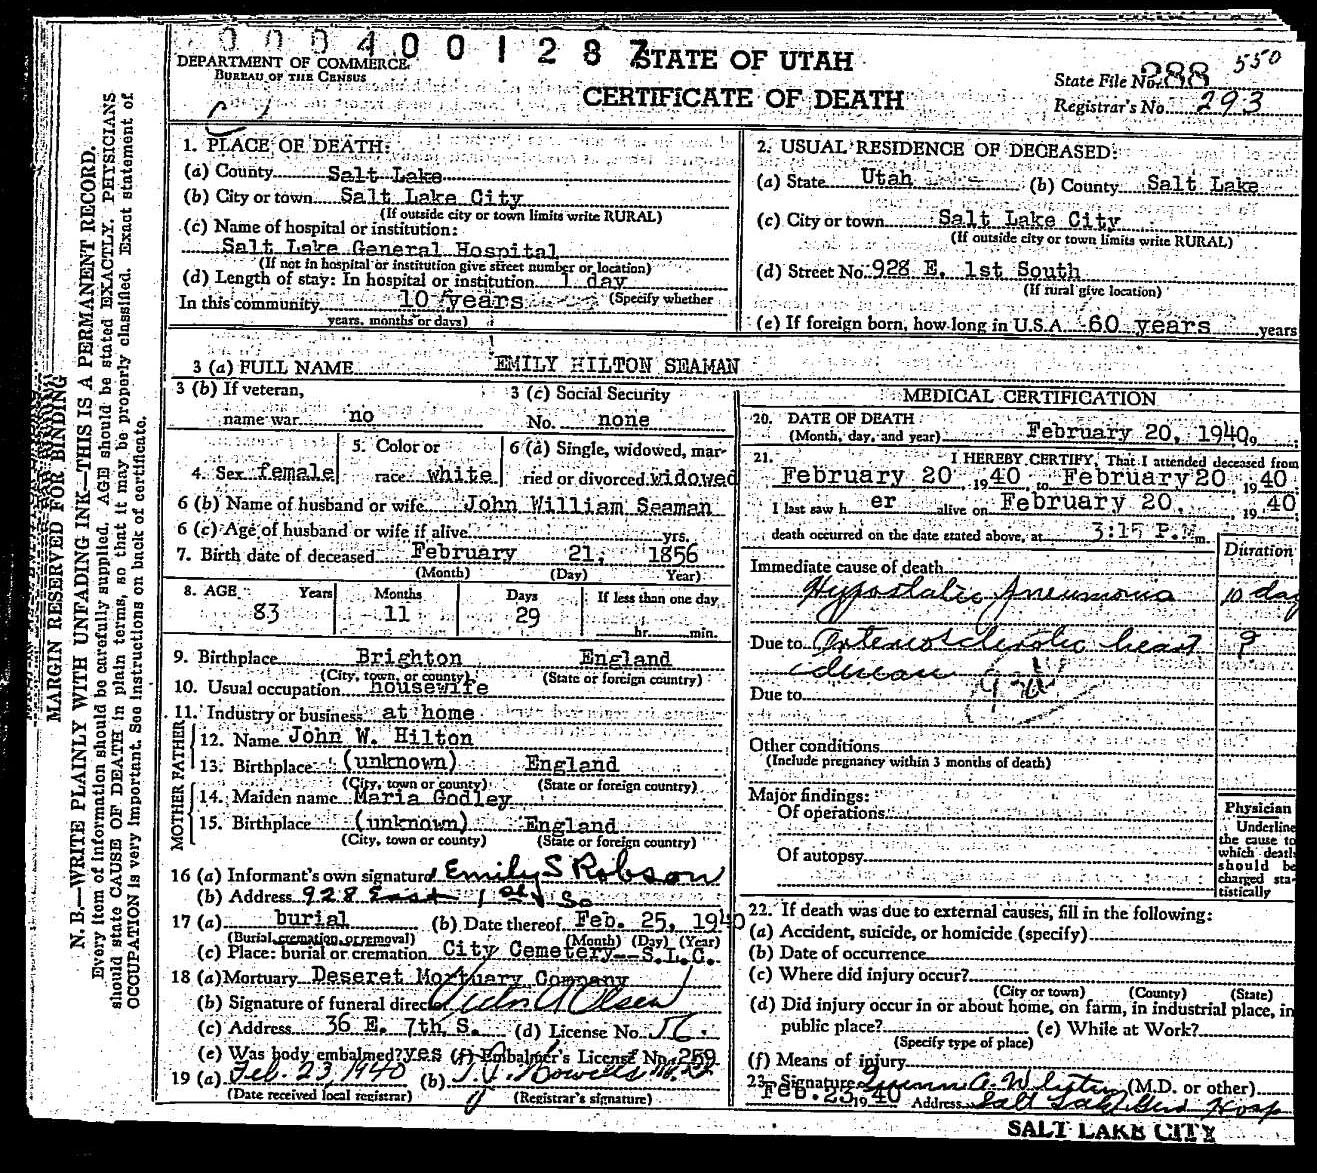 000400128 7 STATE OF UTAH
DEPARTMENT OF COMMERCE
BUREAU OF THE CENSUS
CERTIFICATE OF DEATH
State File No. 288 550
Registrar's No. 293
MARGIN RESERVED FOR BINDING
N. B.—WRITE PLAINLY WITH UNFADING INK—THIS IS A PERMANENT RECORD.
Every item of information should be carefully supplied. AGE should be stated EXACTLY. PHYSICIANS
should state CAUSE OF DEATH in plain terms, so that it may be properly classified. Exact statement of
OCCUPATION is very important. See instructions on back of certificate.
1. PLACE OF DEATH:
(a) County Salt Lake
(b) City or town Salt Lake City
(If outside city or town limits write RURAL)
(c) Name of hospital or institution:
Salt Lake General Hospital
(If not in hospital or institution give street number or location)
(d) Length of stay: In hospital or institution 1 day
In this community 10 years (Specify whether
years, months or days)
2. USUAL RESIDENCE OF DECEASED:
(a) State Utah (b) County Salt Lake
(c) City or town Salt Lake City
(If outside city or town limits write RURAL)
(d) Street No. 928 E. 1st South
(If rural give location)
(e) If foreign born, how long in U.S.A. 60 years years
3 (a) FULL NAME EMILY HILTON SEAMAN
3 (b) If veteran, 3 (c) Social Security
name war no No. none
4. Sex female 5. Color or race white 6 (a) Single, widowed, married or divorced widowed
6 (b) Name of husband or wife John William Seaman
6 (c) Age of husband or wife if alive yrs.
7. Birth date of deceased February 21, 1856
(Month) (Day) Year)
8. AGE Years Months Days If less than one day
83 11 29 hr. min.
9. Birthplace Brighton England
(City, town, or county) (State or foreign country)
10. Usual occupation housewife
11. Industry or business at home
FATHER
12. Name John W. Hilton
13. Birthplace (unknown) England
(City, town or county) (State or foreign country)
MOTHER
14. Maiden name Maria Godley
15. Birthplace (unknown) England
(City, town or county) (State or foreign country)
16 (a) Informant's own signature Emily S Robson
(b) Address 928 East 1st So
17 (a) burial (b) Date thereof Feb. 25, 1940
(Burial, cremation, or removal) (Month) (Day) (Year)
(c) Place: burial or cremation City Cemetery--S.L.C.
18 (a) Mortuary Deseret Mortuary Company
(b) Signature of funeral director Victor A Olsen
(c) Address 36 E. 7th S. (d) License No. 56.
(e) Was body embalmed? yes (f) Embalmer's License No. 259
19 (a) Feb. 23, 1940 (b)
(Date received local registrar) (Registrar's signature)
MEDICAL CERTIFICATION
20. DATE OF DEATH
(Month, day, and year) February 20, 1940
21. I HEREBY CERTIFY, That I attended deceased from
February 20, 1940 to February 20, 1940
I last saw her alive on February 20, 1940
death occurred on the date stated above, at 3:15 P.M m.
Duration
Immediate cause of death
Hypostatic Pneumonia 10 day
Due to Arteriosclerotic heart ?
disease
Due to
Other conditions
(Include pregnancy within 3 months of death)
Major findings:
Of operations
Of autopsy
Physician
Underline
the cause to
which death
should be
charged sta-
tistically
22. If death was due to external causes, fill in the following:
(a) Accident, suicide, or homicide (specify)
(b) Date of occurrence
(c) Where did injury occur?
(City or town) (County) (State)
(d) Did injury occur in or about home, on farm, in industrial place, in
public place? (e) While at Work?
(Specify type of place)
(f) Means of injury
23. Signature (M.D. or other)
Feb. 23 1940 Address Salt Lake Gen Hosp
SALT LAKE CITY